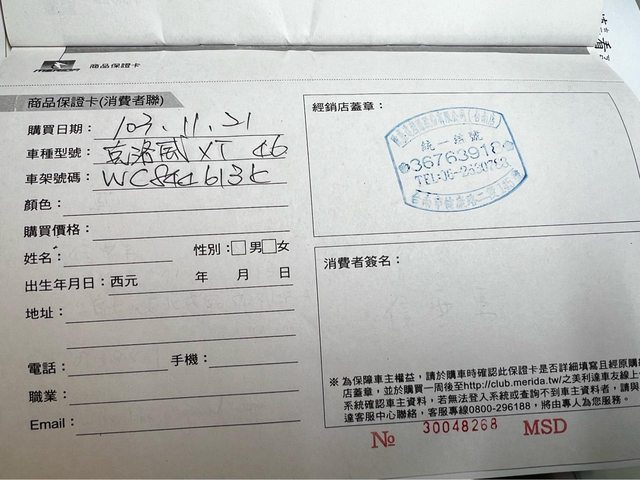 MERIDA 商品保證卡
商品保證卡(消費者聯)
購買日期： 103.11.21
車種型號： 克洛威 XT 46
車架號碼： WC844613K
顏色：
購買價格：
姓名： 性別：□男□女
出生年月日：西元 年 月 日
地址：
電話： 手機：
職業：
Email：
經銷店蓋章：
統一編號
36763918
TEL:06-2630783
消費者簽名：
※ 為保障車主權益，請於購車時確認此保證卡是否詳細填寫且經原購
店蓋章，並於購買一周後至http://club.merida.tw/之美利達車友線上
系統確認車主資料，若無法登入系統或查詢不到車主資料者，請與
達客服中心聯絡，客服專線0800-296188，將由專人為您服務。
No 30048268 MSD
看